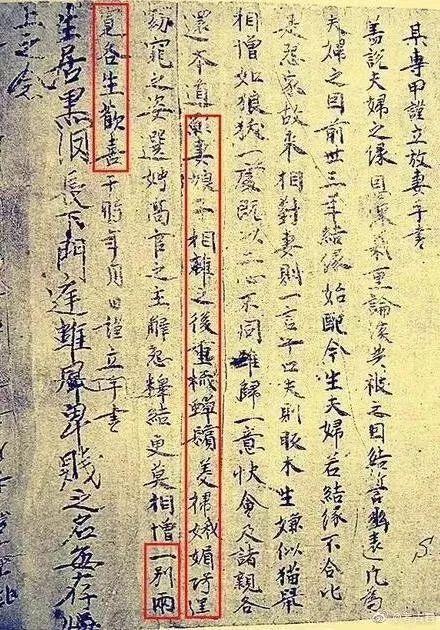 某專甲謹立放妻手書
蓋說夫婦之緣恩深義重論談共被之因結誓幽遠凡為
夫婦之因前世三年結緣始配今生夫婦若結緣不合比
是怨家故來相對妻則一言十口夫則販木生嫌似猫鼠
相憎如狼狘一處既以二心不同難歸一意快會及諸親各
還本道願妻娘子相離之後重梳蟬鬢美掃娥媚巧逞
窈窕之姿選娉高官之主解怨釋結更莫相憎一別兩
寬各生歡喜于時年月日謹立手書
生居黑長下門雖卑賤之名無存
上之念
S.